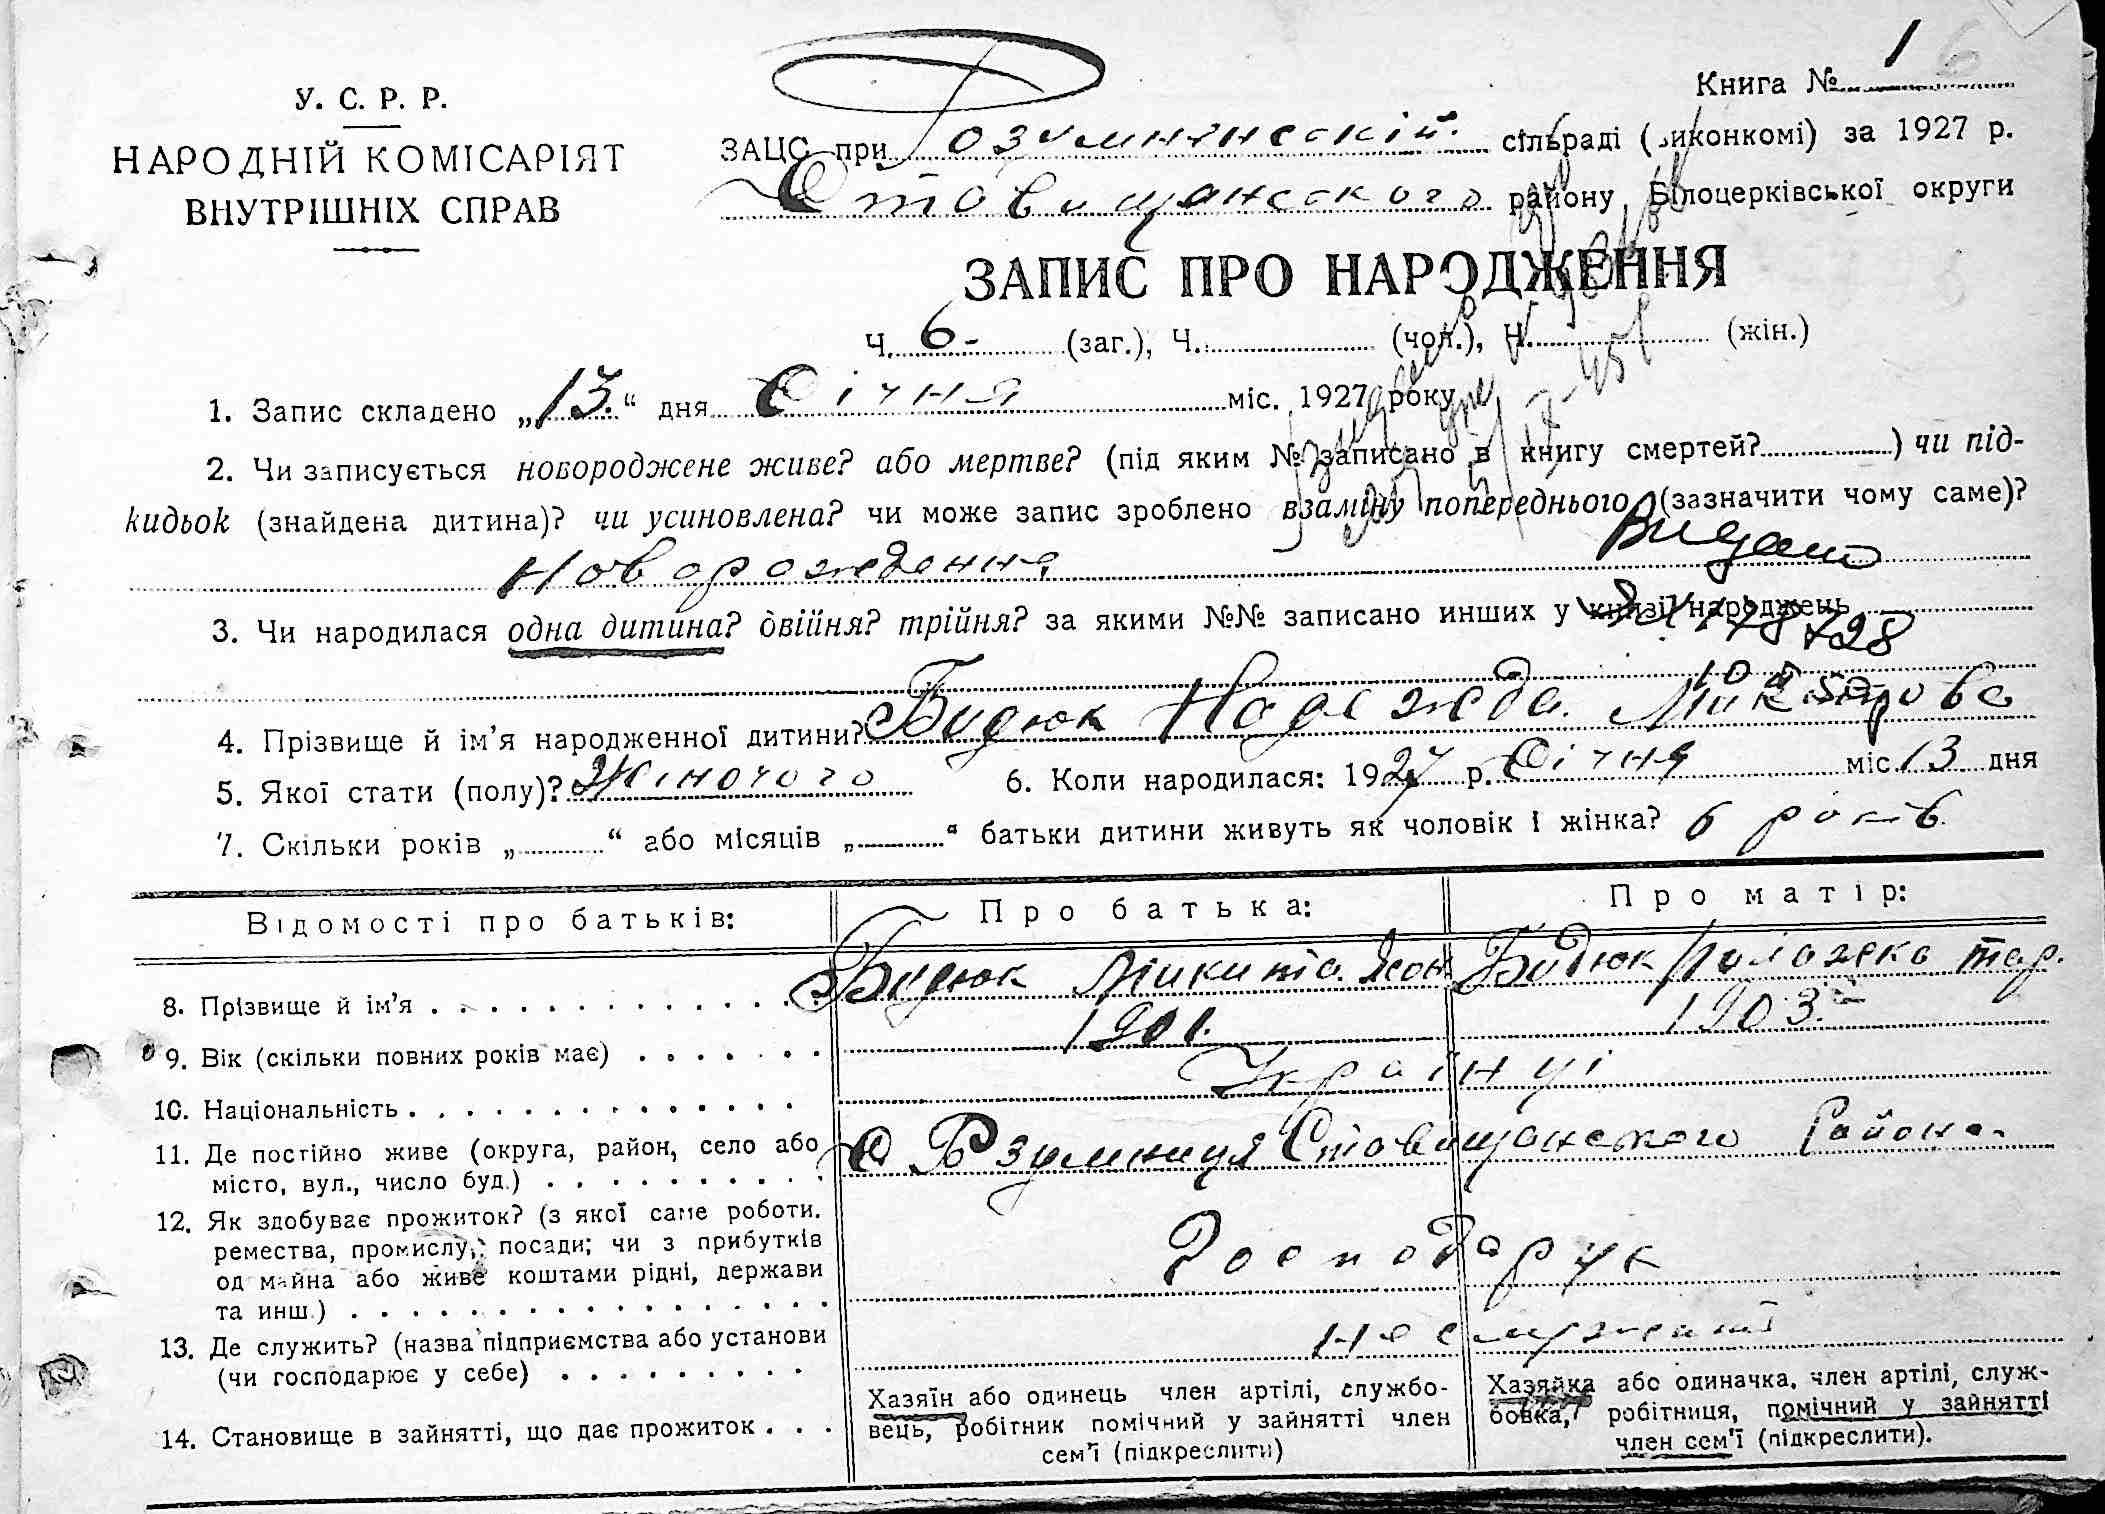 Книга № 1 6
У. С. Р. Р.
НАРОДНІЙ КОМІСАРІЯТ
ВНУТРІШНІХ СПРАВ
ЗАЦС при Розумнянській сільраді (виконкомі) за 1927 р.
Ставищанского району Білоцерківської округи
ЗАПИС ПРО НАРОДЖЕННЯ
Ч. 6- (заг.), Ч. (чол.), Ч. (жін.)
1. Запис складено „13.“ дня Січня міс. 1927 року
2. Чи записується новороджене живе? або мертве? (під яким № записано в книгу смертей?) чи під-
кидьок (знайдена дитина)? чи усиновлена? чи може запис зроблено взаміну попереднього (зазначити чому саме)?
Видано
Новорождення
3. Чи народилася одна дитина? двійня? трійня? за якими №№ записано инших у книзі народжень
4. Прізвище й ім'я народженної дитини? Бидюк Надежда.
5. Якої стати (полу)? Жіночого 6. Коли народилася: 1927 р. Січня міс. 13 дня
7. Скільки років „“ або місяців „“ батьки дитини живуть як чоловік і жінка? 6 років.
Відомості про батьків: Про батька: Про матір:
8. Прізвище й ім'я Бидюк Микита Бидюк Палажка Тар.
9. Вік (скільки повних років має) 1901. 1903.
10. Національність Українці
11. Де постійно живе (округа, район, село або
місто, вул., число буд.) С Розумниця Ставищанского Района.
12. Як здобуває прожиток? (з якої саме роботи,
ремества, промислу, посади; чи з прибутків
од майна або живе коштами рідні, держави
та инш.) Господарук
13. Де служить? (назва підприємства або установи
(чи господарює у себе)
14. Становище в зайнятті, що дає прожиток
Хазяїн або одинець член артілі, службо-
вець, робітник помічний у зайнятті член
сем'ї (підкреслити)
Хазяйка або одиначка, член артілі, служ-
бовка, робітниця, помічний у зайнятті
член сем'ї (підкреслити).